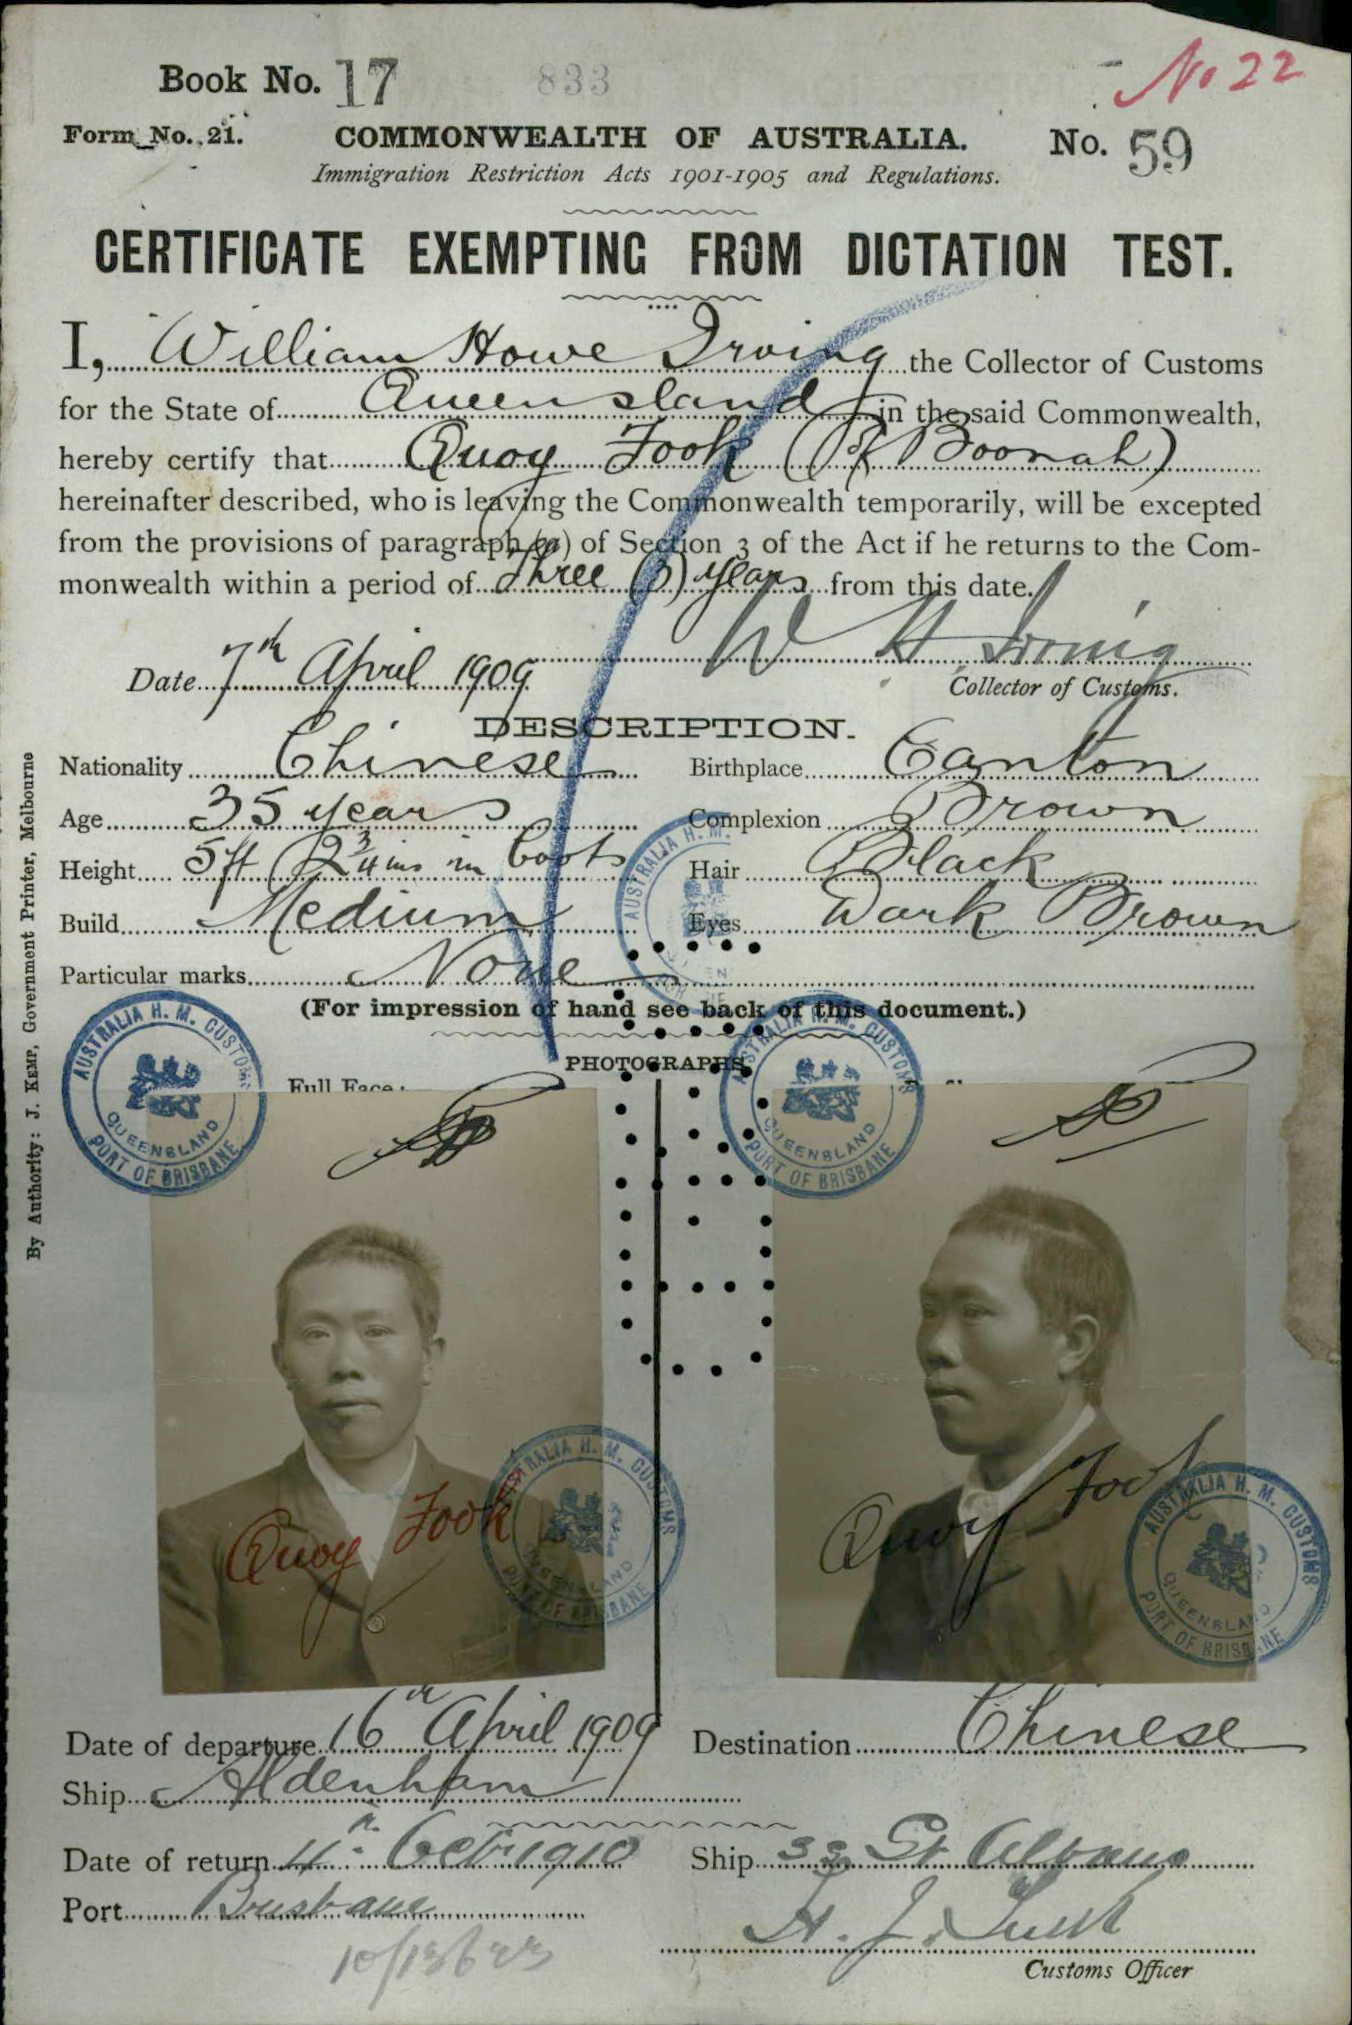 Book No. 17 833 No 22
Form No. 21. COMMONWEALTH OF AUSTRALIA. No. 59
Immigration Restriction Acts 1901-1905 and Regulations.
CERTIFICATE EXEMPTING FROM DICTATION TEST.
I, William Howe Irving the Collector of Customs
for the State of Queensland in the said Commonwealth,
hereby certify that Quoy Fook (Of Boonah)
hereinafter described, who is leaving the Commonwealth temporarily, will be excepted
from the provisions of paragraph (a) of Section 3 of the Act if he returns to the Com-
monwealth within a period of Three (3) years from this date.
W H Irving
Date 7th April 1909
Collector of Customs.
DESCRIPTION.
Nationality Chinese Birthplace Canton
Age 35 years Complexion Brown
Height 5ft 2 3/4 ins in boots Hair Black
Build Medium Eyes Dark Brown
Particular marks None
(For impression of hand see back of this document.)
PHOTOGRAPHS
Full Face:
AUSTRALIA H. M. CUSTOMS
QUEENSLAND
PORT OF BRISBANE
AUSTRALIA H. M. CUSTOMS
QUEENSLAND
PORT OF BRISBANE
AUSTRALIA H. M.
Quoy Fook
Quoy Fook
AUSTRALIA H. M. CUSTOMS
QUEENSLAND
PORT OF BRISBANE
AUSTRALIA H. M. CUSTOMS
QUEENSLAND
PORT OF BRISBANE
Date of departure 16th April 1909 Destination Chinese
Ship Aldenham
Date of return 11th Oct 1910 Ship SS St Albans
Port Brisbane
Customs Officer
By Authority: J. KEMP, Government Printer, Melbourne